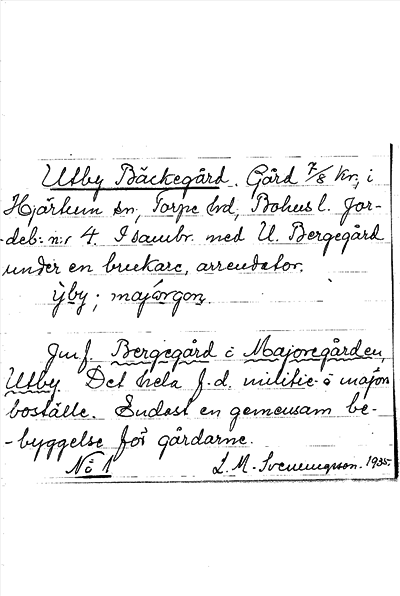 Utby Bäckegård. Gård 7/8 kr, i
Hjärtum sn, Torpe hd, Bohus l. Jor-
deb: n:r 4. I sambr. med U. Bergegård
under en brukare, arrendator.
ỳby; majórgọn.
Jmf. Bergegård i Majoregården,
Utby. Det hela f. d. militie- o major
boställe. Endast en gemensam be-
-byggelse för gårdarne.
No 1 L. M. Svenungsson. 1935.